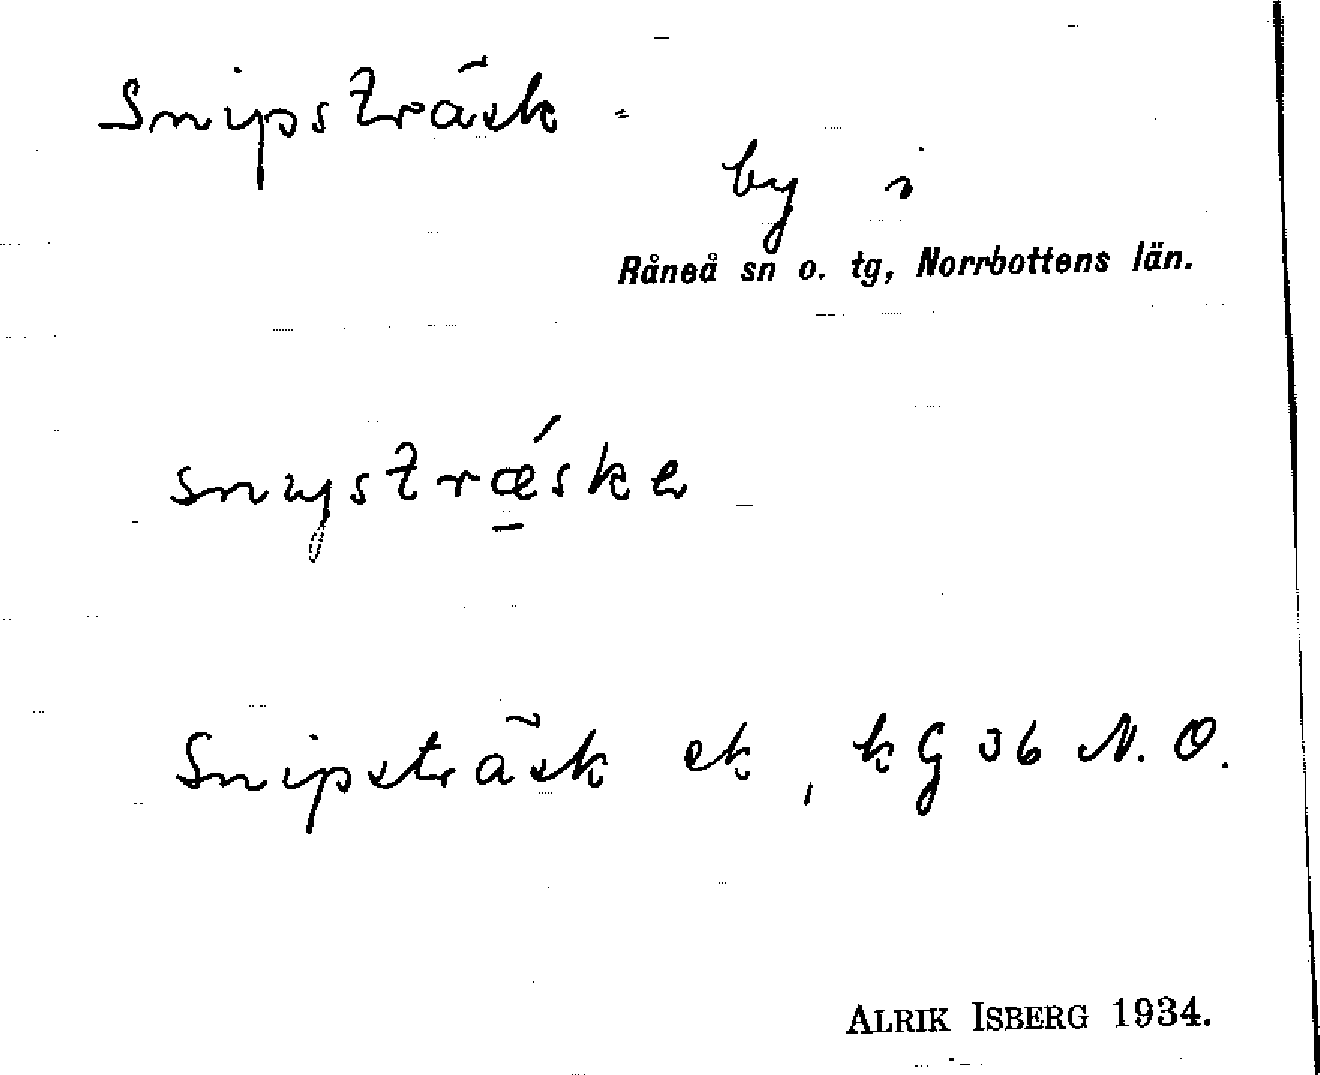 Snipsträsk
by i
Råneå sn o. tg, Norrbottens län.
snystrǽ̱ske
Snipsträsk ek, kG 36 N.O.
ALRIK ISBERG 1934.